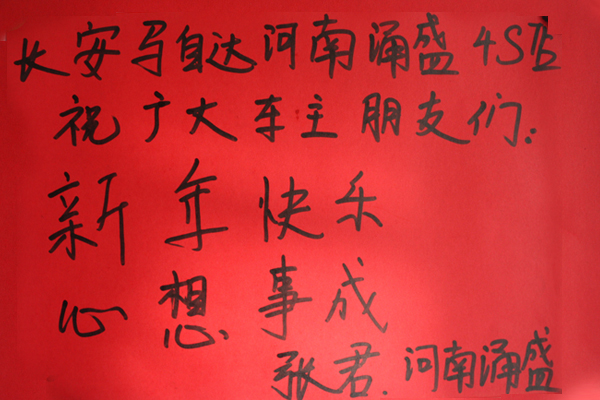 长安马自达河南涌盛4S店
祝广大车主朋友们:
新年快乐
心想事成
张君.河南涌盛